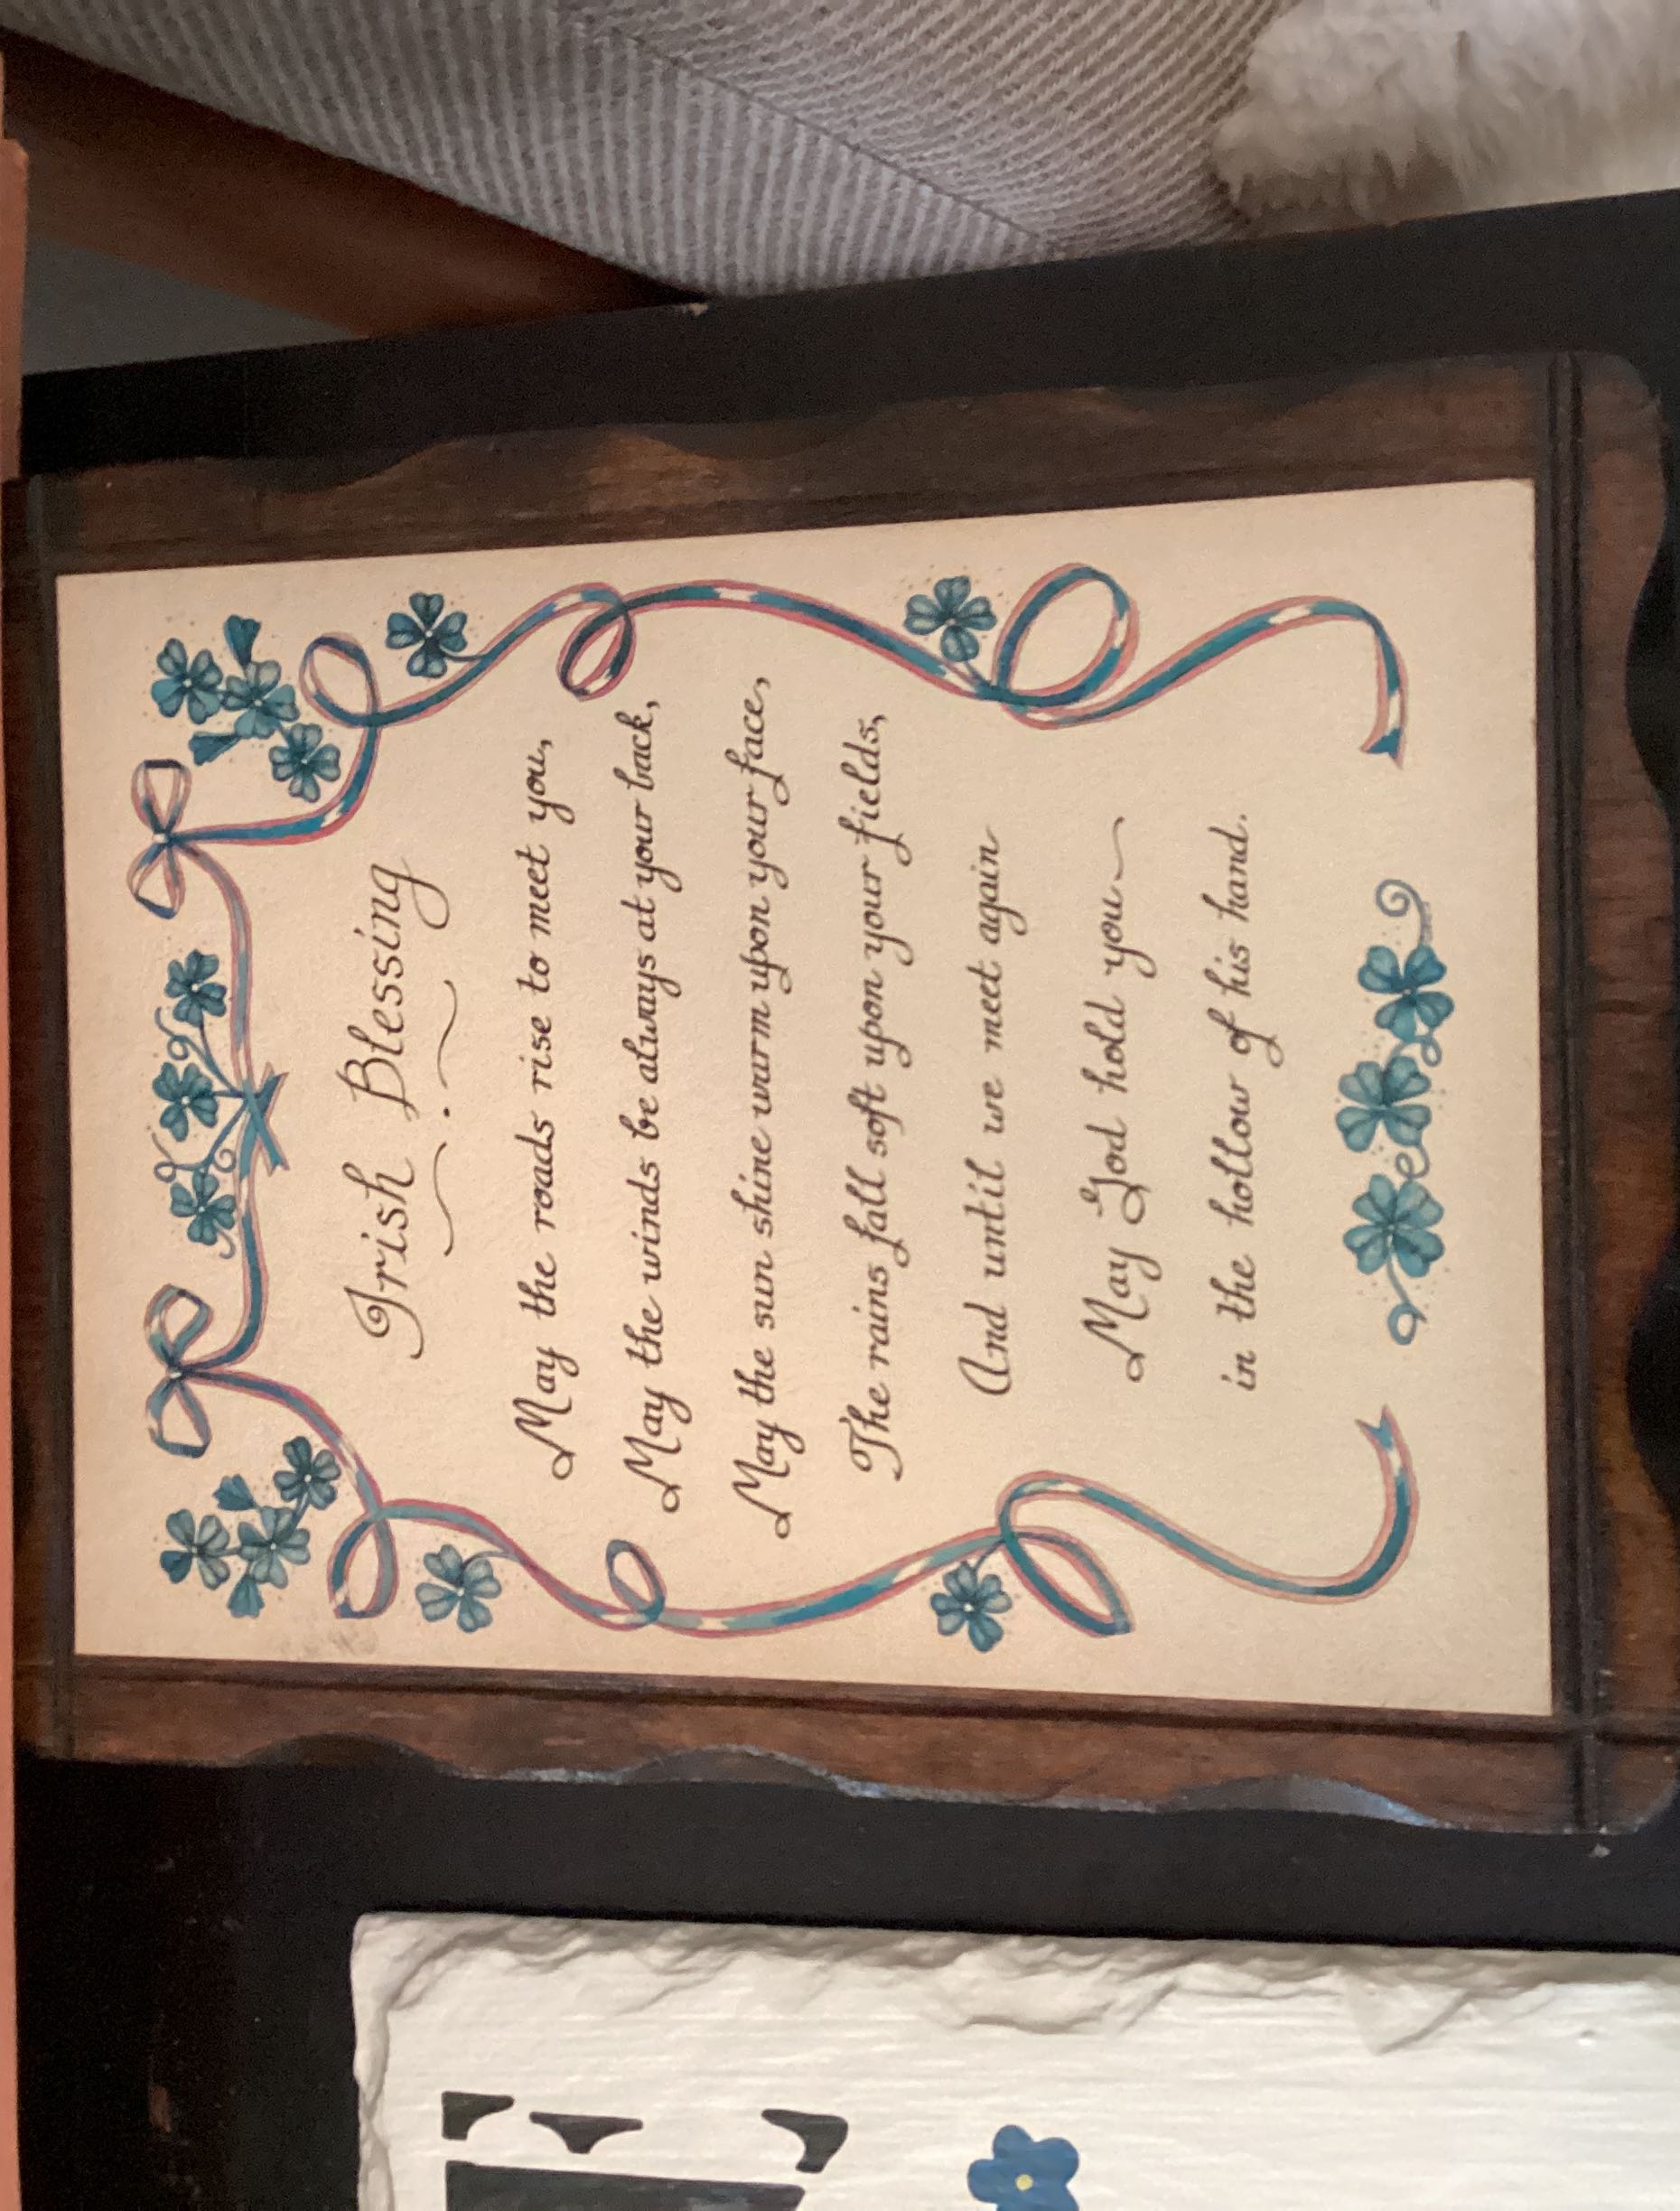 Irish Blessing
May the roads rise to meet you,
May the winds be always at your back,
May the sun shine warm upon your face,
The rains fall soft upon your fields,
And until we meet again
May God hold you
in the hollow of his hand.